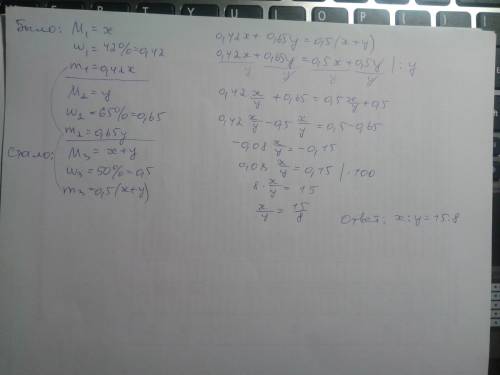 Было: M₁ = x
w₁ = 42% = 0,42
m₁ = 0,42x
M₂ = y
w₂ = 65% = 0,65
m₂ = 0,65y
Стало: M₃ = x+y
w₃ = 50% = 0,5
m₃ = 0,5(x+y)
0,42x + 0,65y = 0,5(x+y)
0,42x/y + 0,65y/y = 0,5x/y + 0,5y/y | : y
0,42 x/y + 0,65 = 0,5 x/y + 0,5
0,42 x/y - 0,5 x/y = 0,5 - 0,65
-0,08 x/y = -0,15
0,08 x/y = 0,15 | ·100
8 · x/y = 15
x/y = 15/8
Ответ: x:y = 15:8